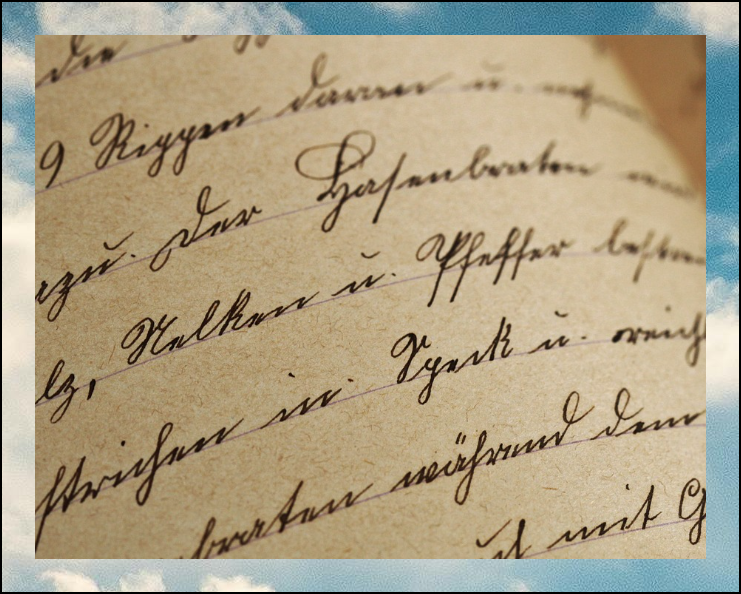 die
9 Rippen daran u.
azu. Der Hasenbraten
lz, Nelken u. Pfeffer bestreu
strichen in. Speck u. reich
braten während dem
mit G